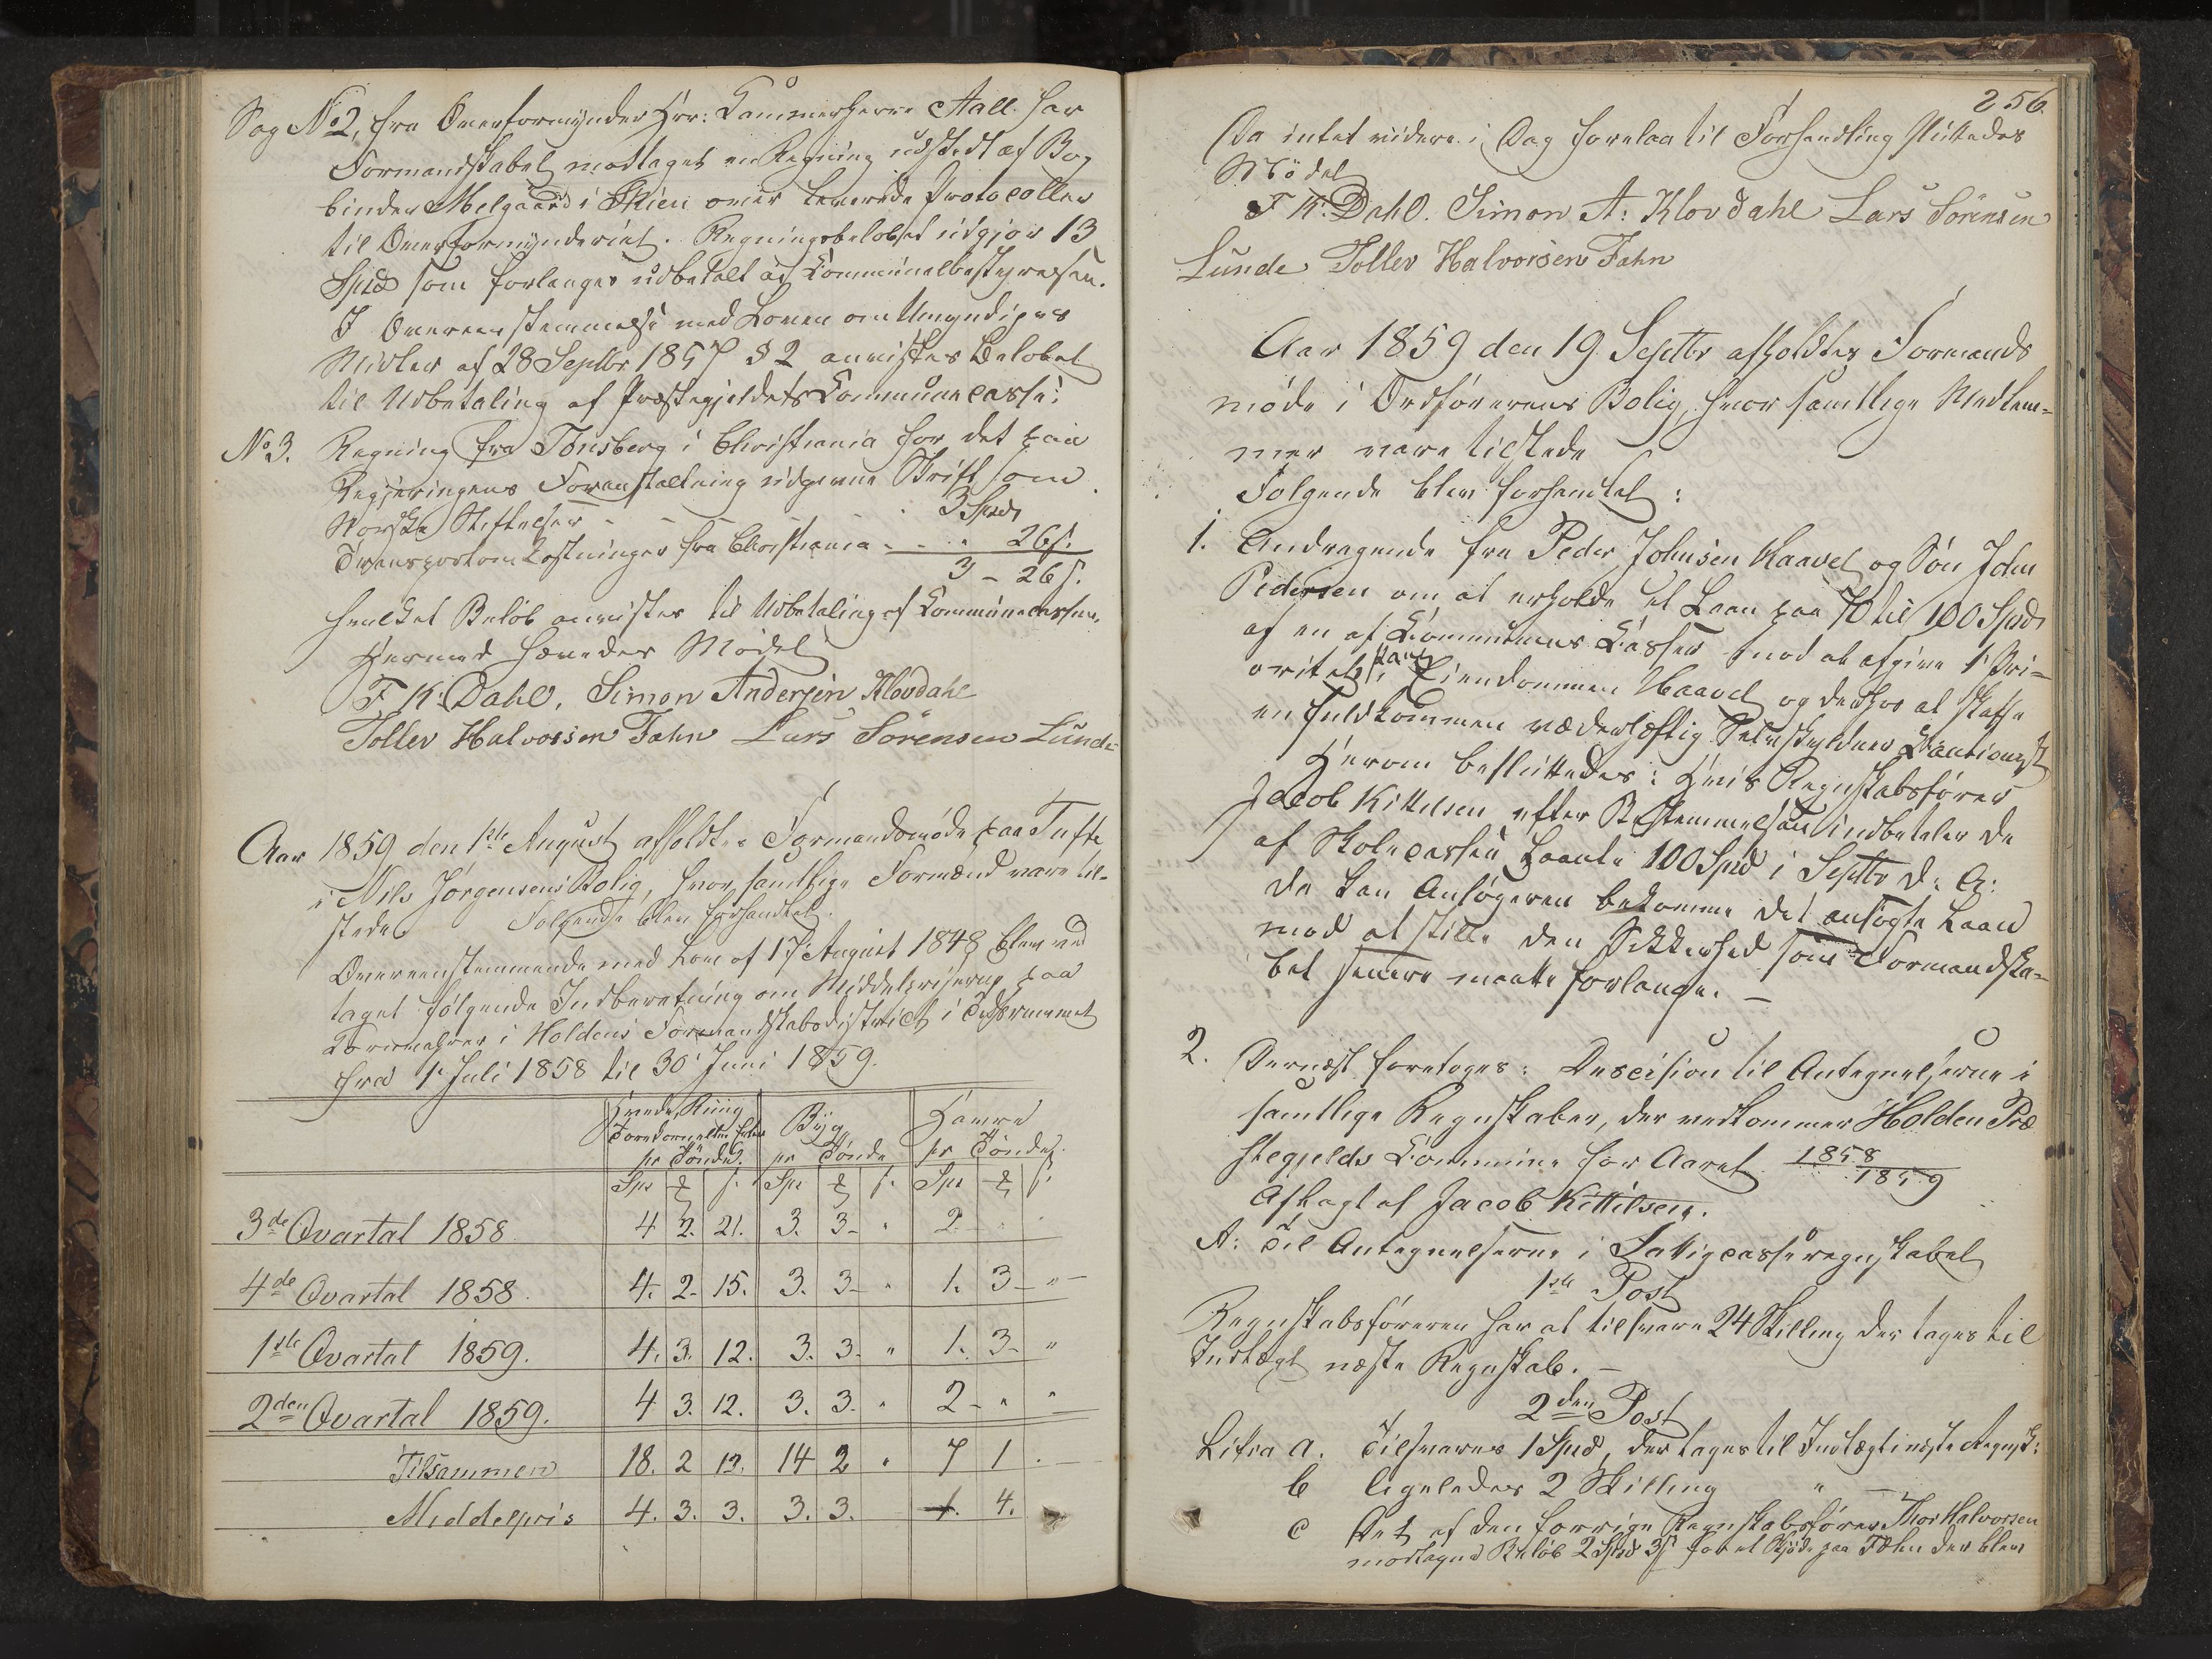 Sag No 2, fra Overformynder Hrr: Kammerherre Aall har
Formandskabet modtaget en Regning udstedt af Bog
binder Melgaard i Skien over leverede Protocoller
til Overformynderiet. Regningsbeløbet udgjør 13
Spd som forlanges udbetalt af Communebestyrelsen.
I Overeensstemmelse med Loven om Umyndiges
Midler af 28 Septbr 1857 § 2 anvistes Beløbet
til Udbetaling af Præstegjeldets Communecasse.
No 3. Regning fra Tønsberg i Christiania for det paa
Regjeringens Foranstaltning udgivne Skrift som
Norske Stiftelser - - . 3 Spd
Transportomkostninger fra Christiania - - . 26 s.
3 - 26 s.
hvilket Beløb anvistes til Udbetaling af Communecassen.
Hermed hævedes Mødet
F K. Dahl, Simon Andersen Klovdahl
Tollev Halvorsen Fahn Lars Sörensen Lunde
Aar 1859 den 1ste August afholdtes Formandsmøde paa Tufte
i Nils Jørgensens Bolig, hvor samtlige Formænd vare til-
stede. Følgende blev forhandlet.
Overeensstemmende med Lov af 17 August 1848 blev ved
taget følgende Indberetning om Middelpriserne paa
Kornvarer i Holdens Formandskabsdistrict i Tidsrummet
fra 1 Juli 1858 til 30 Juni 1859.
Hvede, Rug
pr Tønde. Byg pr Tønde Havre pr Tønde.
Spd s. Spd s. Spd s.
3de Qvartal 1858 4 2. 21. 3. 3- " 2. . .
4de Qvartal 1858. 4. 2. 15. 3. 3- " 1. 3- "-
1ste Qvartal 1859. 4. 3. 12. 3. 3. " 1. 3- "
2den Qvartal 1859. 4 3. 12. 3. 3. " 2- " "
Tilsammen 18. 2 12. 14 2 " 7 1 . -
Middelpris 4. 3. 3. 3. 3. 1. 4.
256.
Da intet videre i Dag forelaa til Forhandling sluttedes
Mödet
F K. Dahl. Simon A: Klovdahl Lars Sörensen
Lunde Tollev Halvorsen Fahn
Aar 1859 den 19 Septbr afholdtes Formands
møde i Ordførerens Bolig, hvor samtlige Medlem-
mer vare tilstede
Følgende blev forhandlet:
1. Andragende fra Peder Johnsen Haavet og Søn John
Pedersen om at erholde et Laan paa 70 til 100 Spd
af en af Communens Casser mod at afgive 1 Pri-
oritets Pant i Eiendommen Haavet og derhos at skaffe
en fuldkommen vederhæftig Selvskyldner Cautionist
Herom besluttedes: Hvis Regnskabsfører
Jacob Kittilsen efter Bestemmelsen indbetaler de
af Skolecassen laante 100 Spd i Septbr d: A:
da kan Ansøgeren bekomme det ansøgte Laan
mod at stille den Sikkerhed som Formandska-
bet senere maatte forlange. -
2. Dernæst foretoges: Decision til Antegnelserne i
samtlige Regnskaber, der vedkommer Holden Præ
stegjelds Commune for Aaret 1858/1859
Aflagt af Jacob Kittilsen.
A: Til Antegnelserne i Fattigcasseregnskabet
1ste Post
Regnskabsføreren har at tilsvare 24 Skilling der tages til
Indtægt næste Regnskab. -
2den Post
Litra a. Tilsvares 1 Spd, der tages til Indtægt i næste Regnsk:
b ligeledes 2 Skilling " -
c Det af den forrige Regnskabsfører Thor Halvorsen
modtagne Beløb 2 Spd 3 s for et Skjøde paa Fæhn der blev